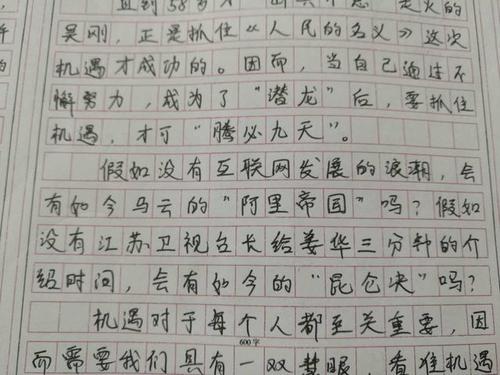 直到58岁才
火的
吴刚，正是抓住《人民的名义》这次
机遇才成功的。因而，当自己通过不
懈努力，成为了“潜龙”后，要抓住
机遇，才可“腾必九天”。
假如没有互联网发展的浪潮，会
有如今马云的“阿里帝国”吗？假如
没有江苏卫视台长给姜华三分钟的介
绍时间，会有如今的“昆仑决”吗？
机遇对于每个人都至关重要，因
600字
而需要我们具有一双慧眼，看准机遇